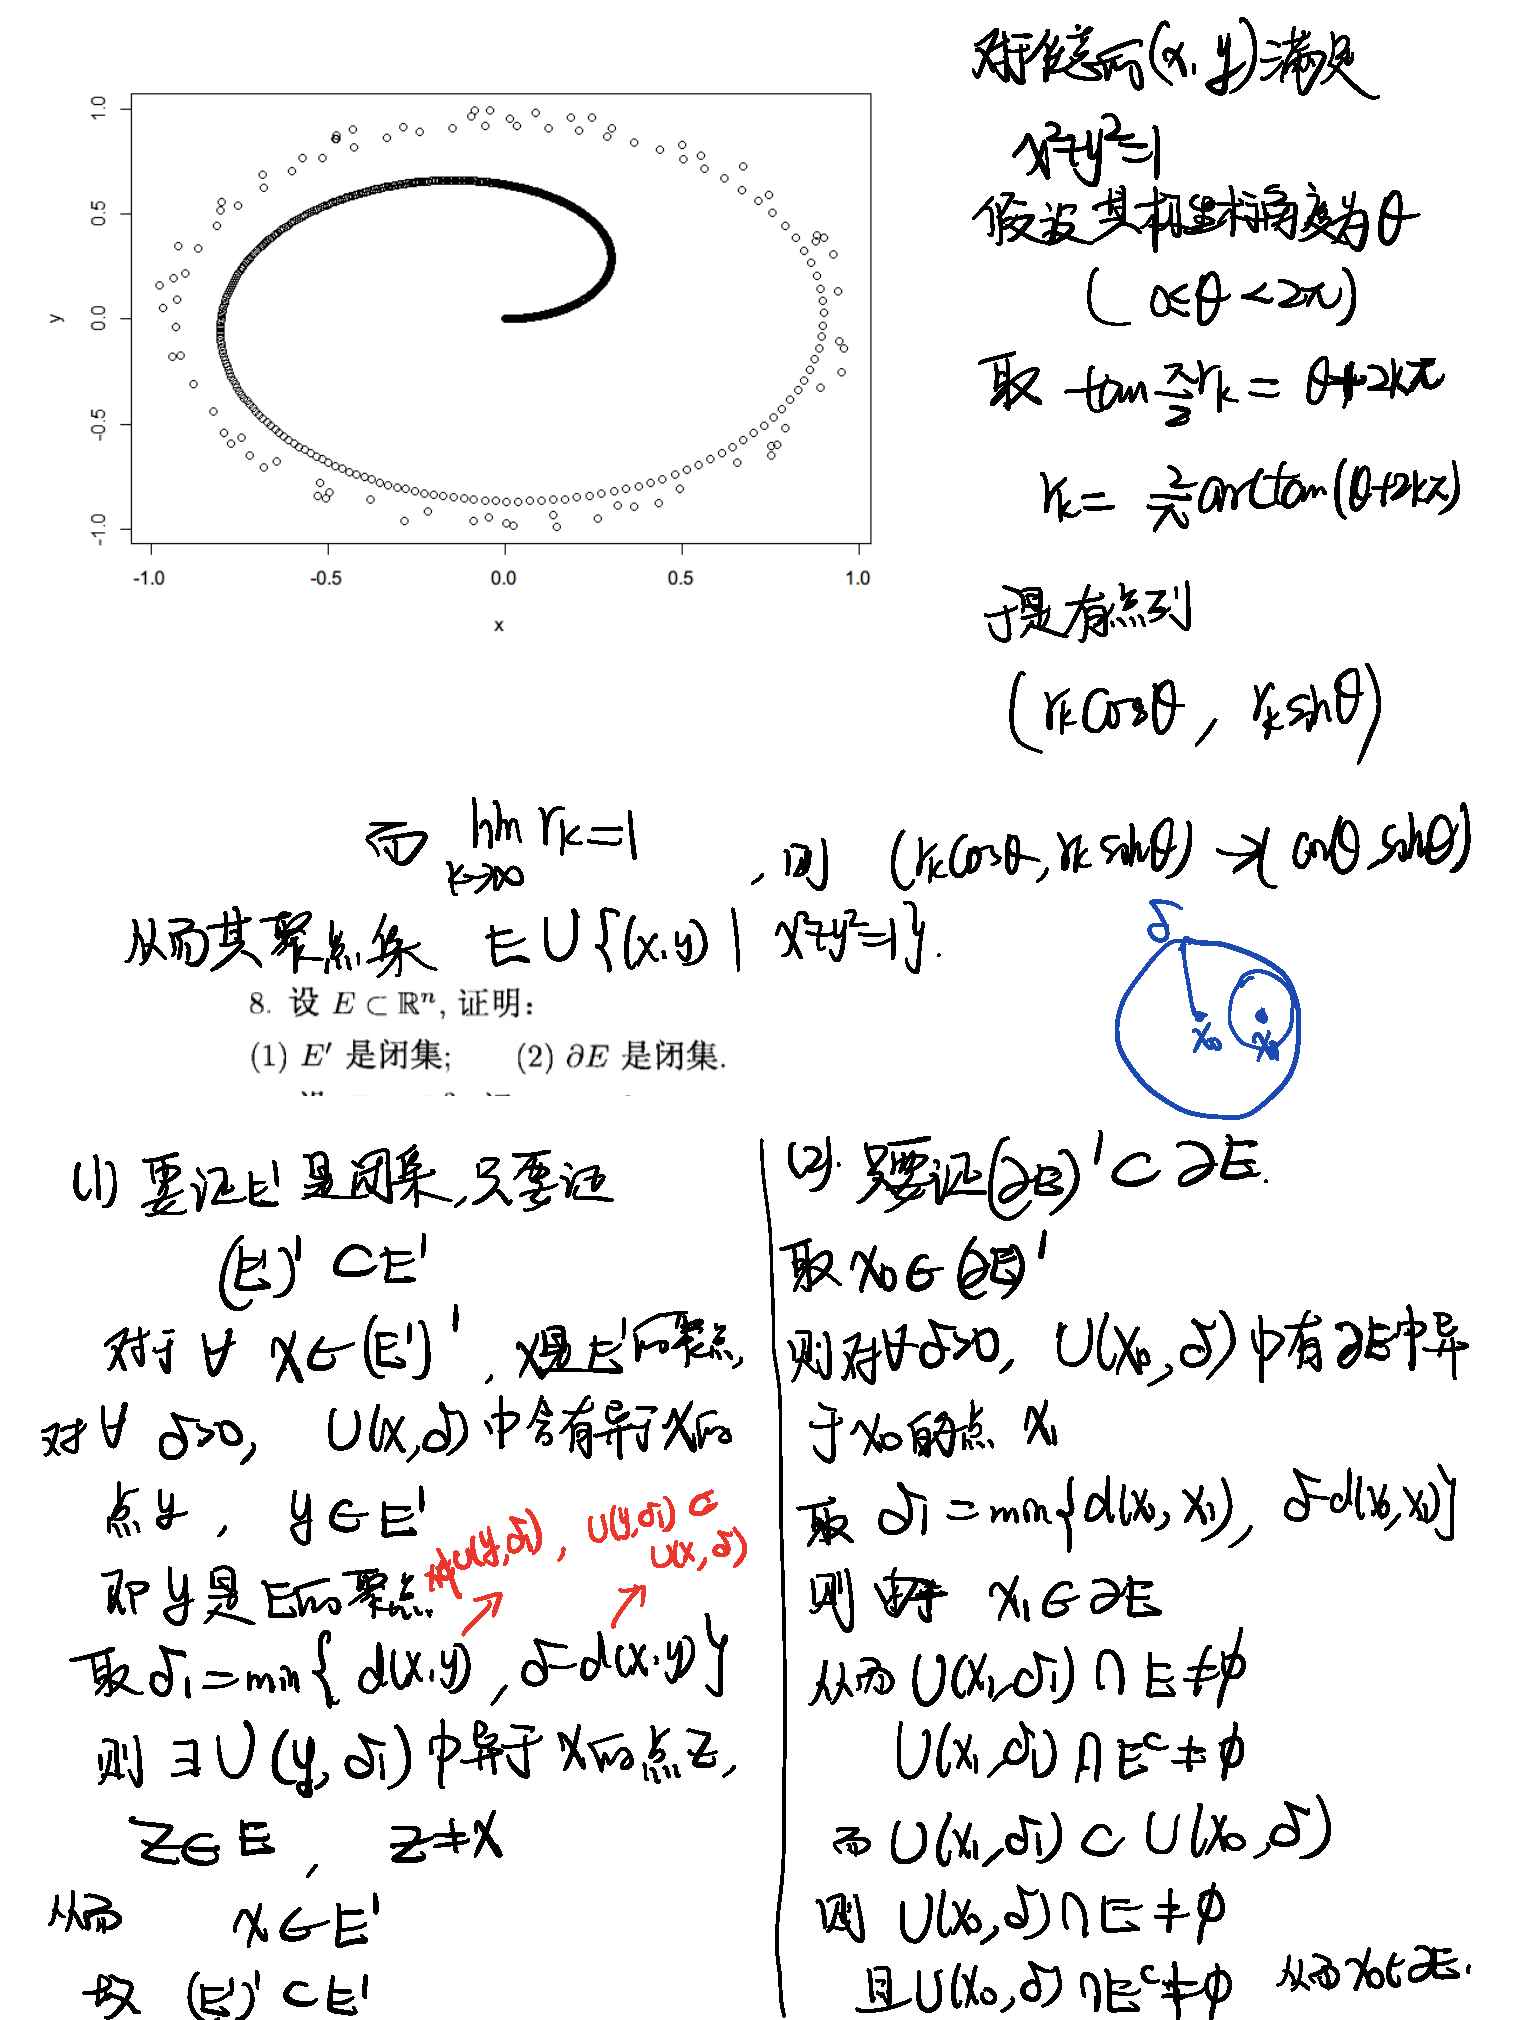 对于任意的(x,y)满足
x²+y²=1
假设其极坐标角度为θ
(0≤θ<2π)
取 tan π/2 r_k = θ+2kπ
r_k = 2/π arctan(θ+2kπ)
于是有点列
(r_k cosθ, r_k sinθ)
1.0
0.5
0.0
-0.5
-1.0
y
-1.0 -0.5 0.0 0.5 1.0
x
而 lim_{k→∞} r_k=1, 则 (r_k cosθ, r_k sinθ) → (cosθ, sinθ)
从而其聚点集 E∪{(x,y) | x²+y²=1}.
δ
x₀ x₁
8. 设 E ⊂ ℝⁿ, 证明:
(1) E′ 是闭集; (2) ∂E 是闭集.
(1) 要证E′是闭集,只要证
(E′)′ ⊂ E′
对于∀ x∈(E′)′, x是E′的聚点,
对∀ δ>0, U(x,δ)中含有异于x的
点y, y∈E′
即y是E的聚点.
对U(y,δ₁), U(y,δ₁)⊂
U(x,δ)
取δ₁=min{d(x,y), δ-d(x,y)}
则∃U(y,δ₁)中异于x的点z,
z∈E, z≠x
从而 x∈E′
故 (E′)′⊂E′
(2). 只要证(∂E)′⊂∂E.
取x₀∈(∂E)′
则对∀δ>0, U(x₀,δ)中有∂E中异
于x₀的点 x₁
取 δ₁=min{d(x₀,x₁), δ-d(x₀,x₁)}
则由于 x₁∈∂E
从而U(x₁,δ₁)∩E≠∅
U(x₁,δ₁)∩Eᶜ≠∅
而U(x₁,δ₁)⊂U(x₀,δ)
则 U(x₀,δ)∩E≠∅
且U(x₀,δ)∩Eᶜ≠∅ 从而x₀∈∂E.